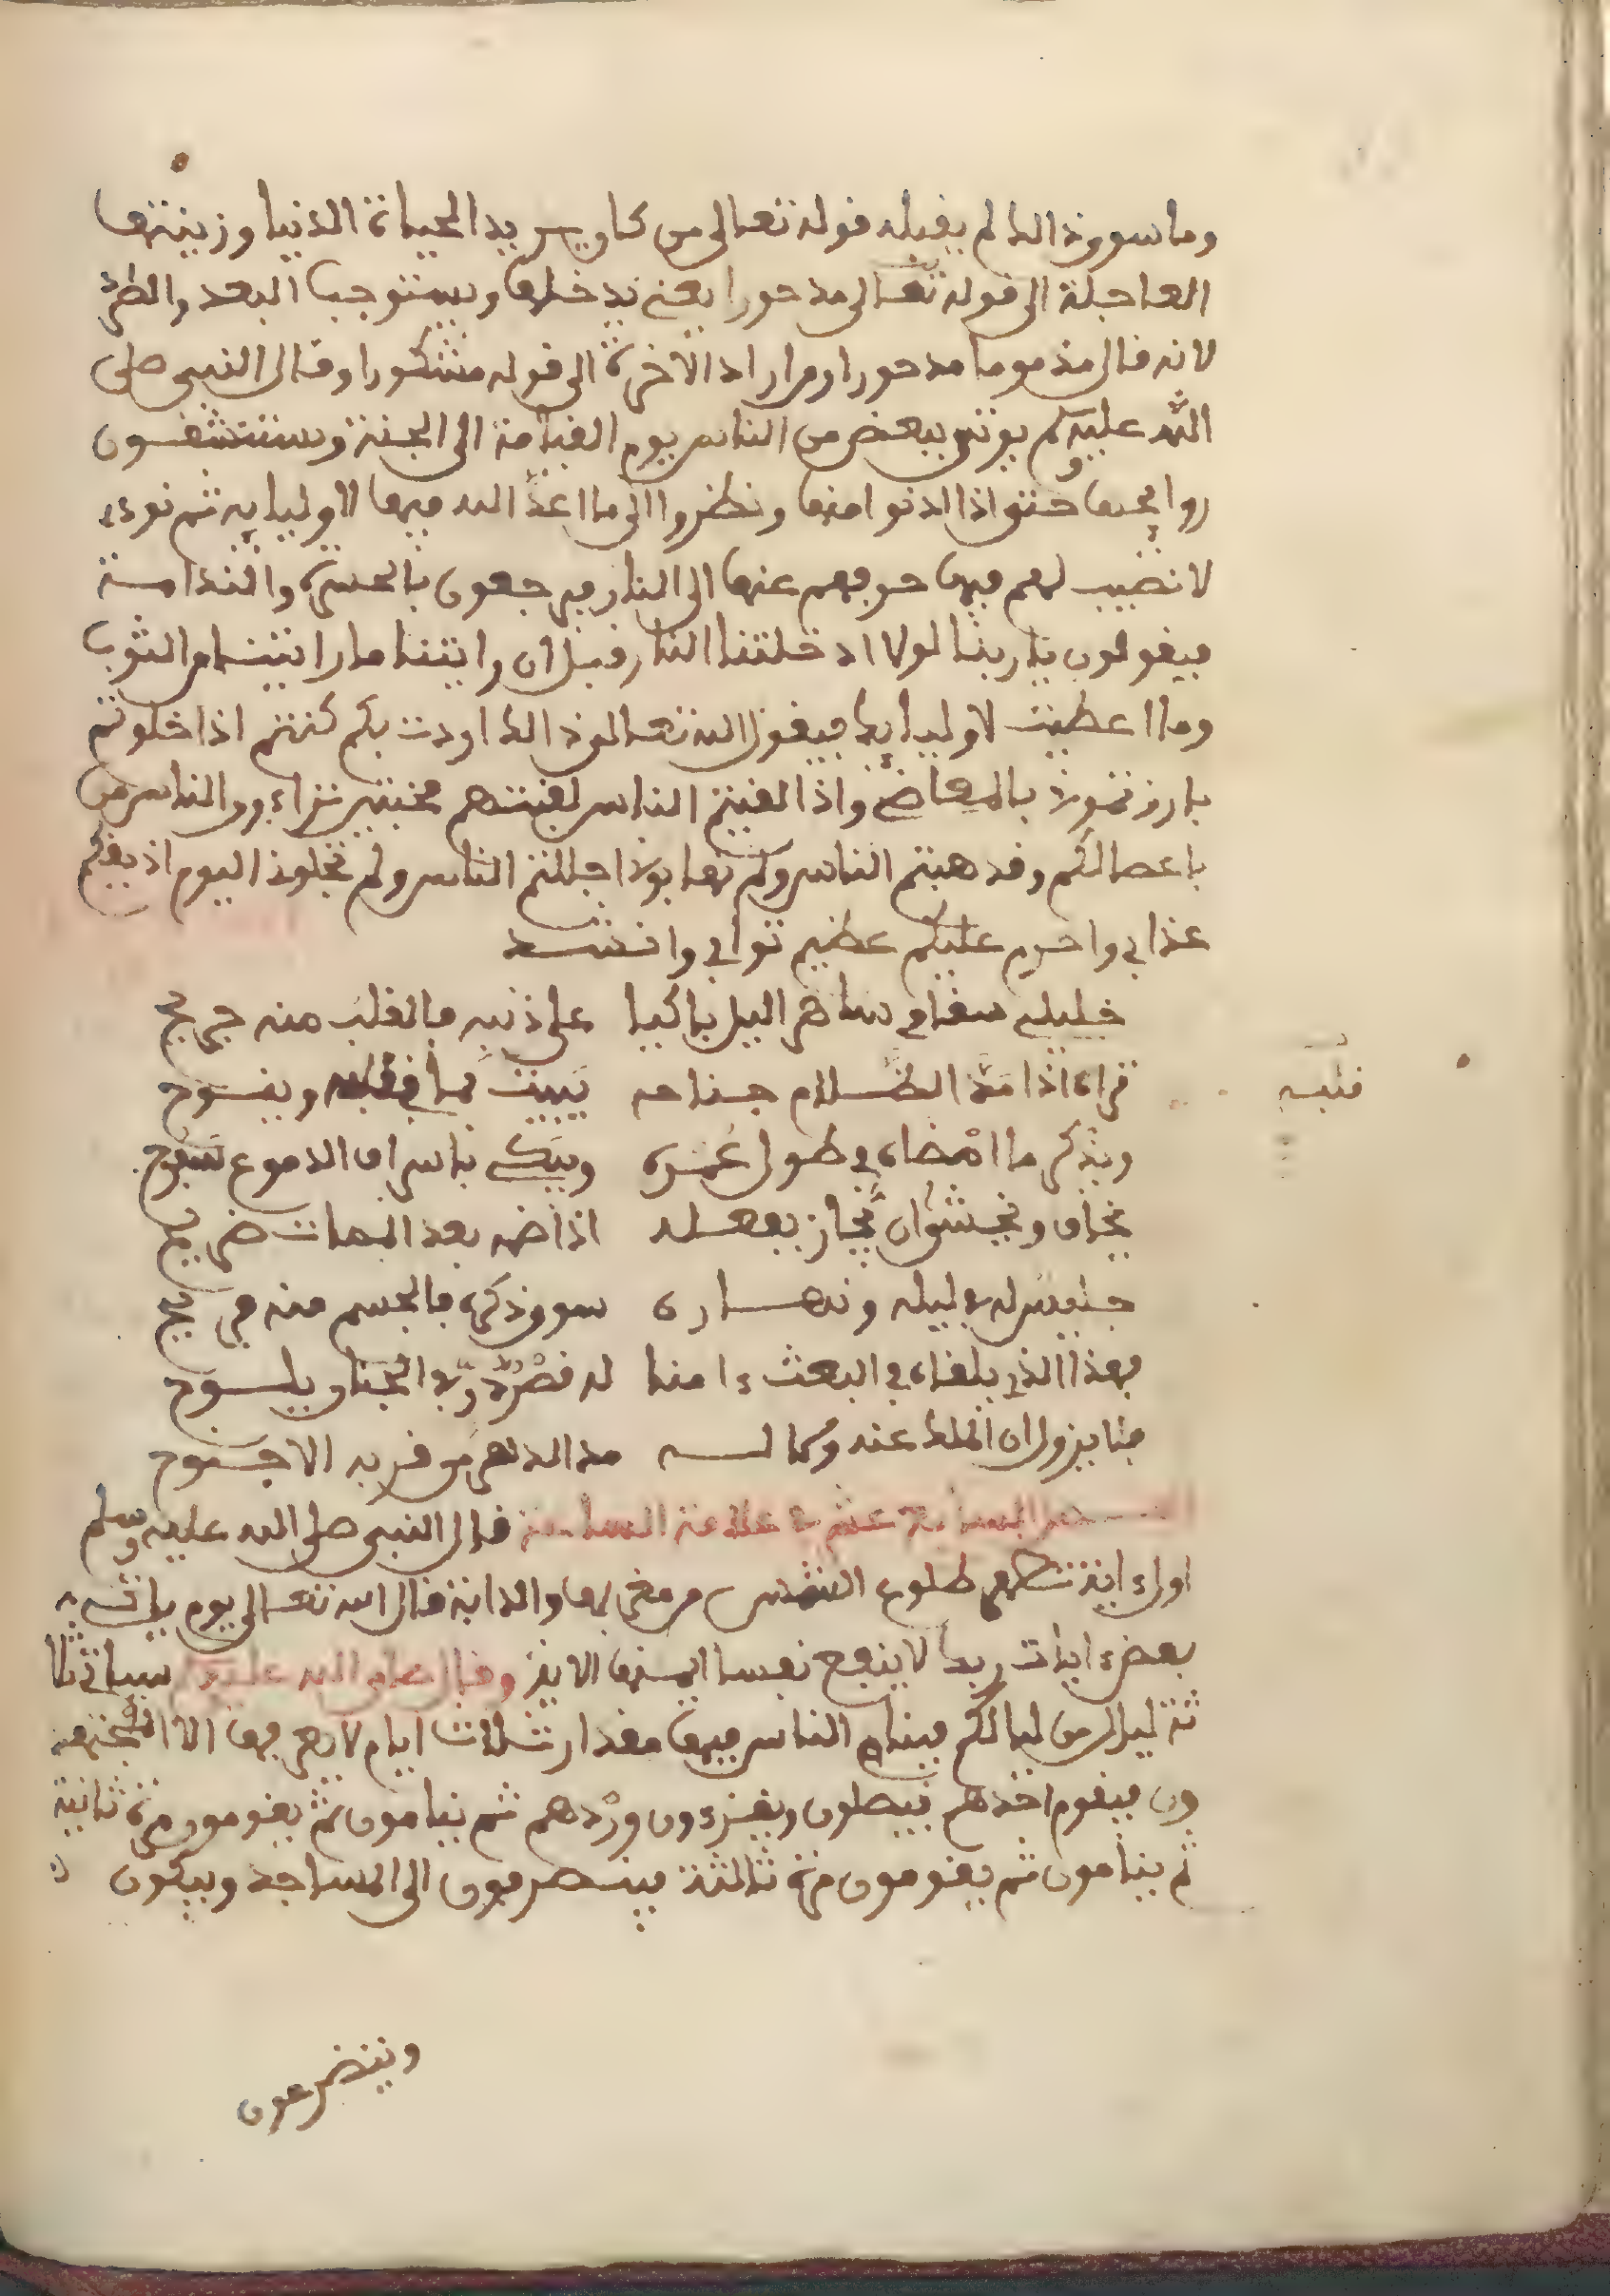 وما سوى ذالك لم يقبله قوله تعالى من كان يريد الحياة الدنيا وزينتها
العاجلة الى قوله تعالى مدحورا يعني يدخلها ويستوجب البعد والطرد
لانه قال مذموما مدحورا ومن اراد الاخرة الى قوله مشكورا وقال النبي صلى
الله عليه يوتى ببعض من الناس يوم القيامة الى الجنة ويستنشقون
روايحها حتى اذا ادنوا منها ونظروا الى ما اعد الله فيها لاوليايه ثم نودي
لا نصيب لهم فيها عنها الى النار فيرجعون بالحسرة والندامة
فيقولون يا ربنا لولا ادخلتنا النار قبل ان رايتنا ما رايتنا من الثواب
وما اعطيت لاوليايك فيقول الله تعالى ذالك اردت بكم كنتم اذا خلوتم
بارزتموني بالمعاصي واذا لقيتم الناس لقيتهم مخبتين تراءون الناس من
باعمالكم وقد هبتم الناس ولم تهابوني اجللتم الناس ولم تجلوني اليوم اذيقكم
عذابي واحرم عليكم عظيم ثوابي وانشد
خليلي سقام ساهر اليل باكيا على ذنبه فالقلب منه جريح
تراه اذا مد الظلام جناحه يبيت بما في قلبه وينوح
قلبه
ويذكر ما امضاه في طول عمره ويبكي باسراف الدموع سفوح
يخاف ويخشى ان يجاز بفعله اذا ضمه بعد الممات ضريح
جليس له في ليله ونهاره سوى ذكره فالجسم منه
فهذا الذي يلقاه في البعث ءامنا له قصر در في الجنان يلوح
فيا يزول ان الملك عنه وما له مدا الدهر من قربه الا جنوح
السابع عشر في علامة الساعة قال النبي صلى الله عليه وسلم
اول ءاية تظهر طلوع الشمس من مغربها والدابة قال الله تعالى يوم ياتي
بعض ءايات ربك لا ينفع نفسا ايمنها الاية وقال صلى الله عليه سياتي ثلا
ثة ليال من لياليكم فينام الناس فيها مقدار ثلاث ايام لا يعرفها الا المجتهد
ون فيقوم احدهم فيصلون ويقرءون وردهم ثم ينامون ثم يقومون مرة ثانية
ثم ينامون ثم يقومون مرة ثالثة فينصرفون الى المساجد ويبكون
ويتضرعون